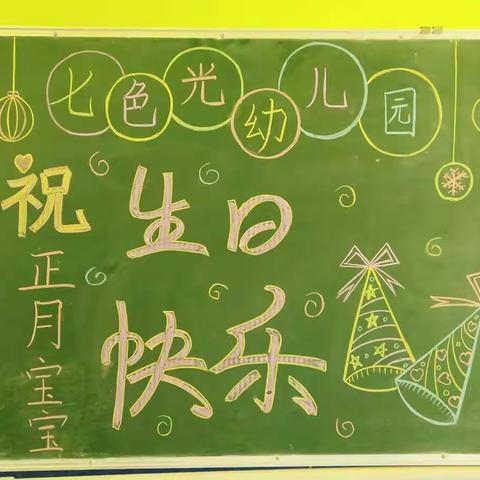 七色光幼儿园
祝
正月宝宝
生日
快乐